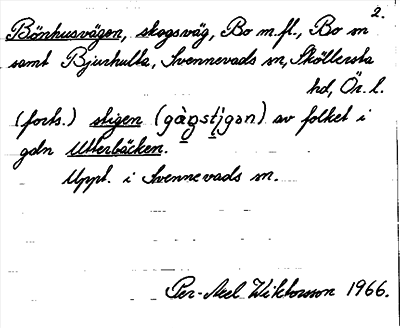 2.
Bönhusvägen, skogsväg, Bo m.fl., Bo sn
samt Bjurhulta, Svennevads sn, Sköllersta
hd, Ör. l.
(forts.) stigen (gàŋstìgən) av folket i
gdn Utterbäcken.
Uppt. i Svennevads sn.
Per-Axel Wiktorsson 1966.